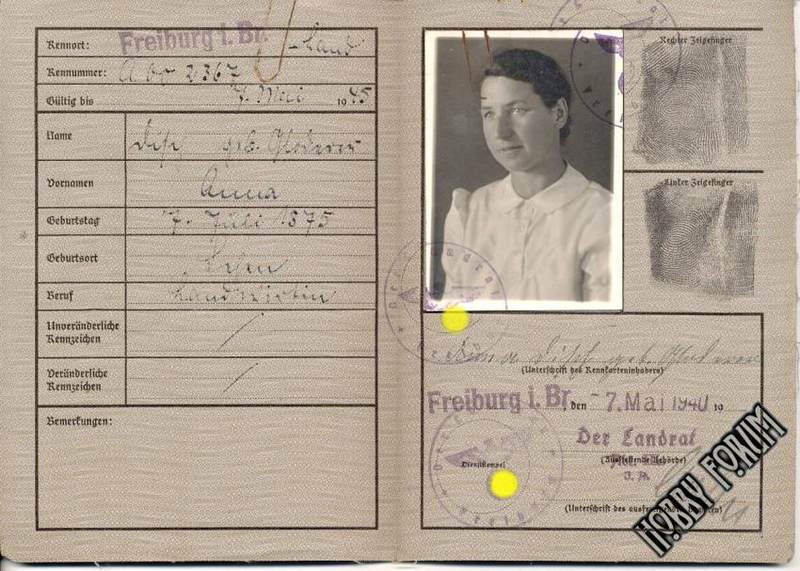 Kennort: Freiburg i. Br. -Land
Kennummer: A 00 2367
Gültig bis 7. Mai 1945
Name geb. Gloderer
Vornamen Anna
Geburtstag 7. Juli 1875
Geburtsort
Beruf Landwirtin
Unveränderliche
Kennzeichen /
Veränderliche
Kennzeichen /
Bemerkungen:
Rechter Zeigefinger
Linker Zeigefinger
Anna geb.
(Unterschrift des Kennkarteninhabers)
Freiburg i. Br., den -7. Mai 1940 19
Der Landrat
Dienststempel
(Ausstellende Behörde)
J. A.
(Unterschrift des ausfertigenden Beamten)
HOBBY FORUM